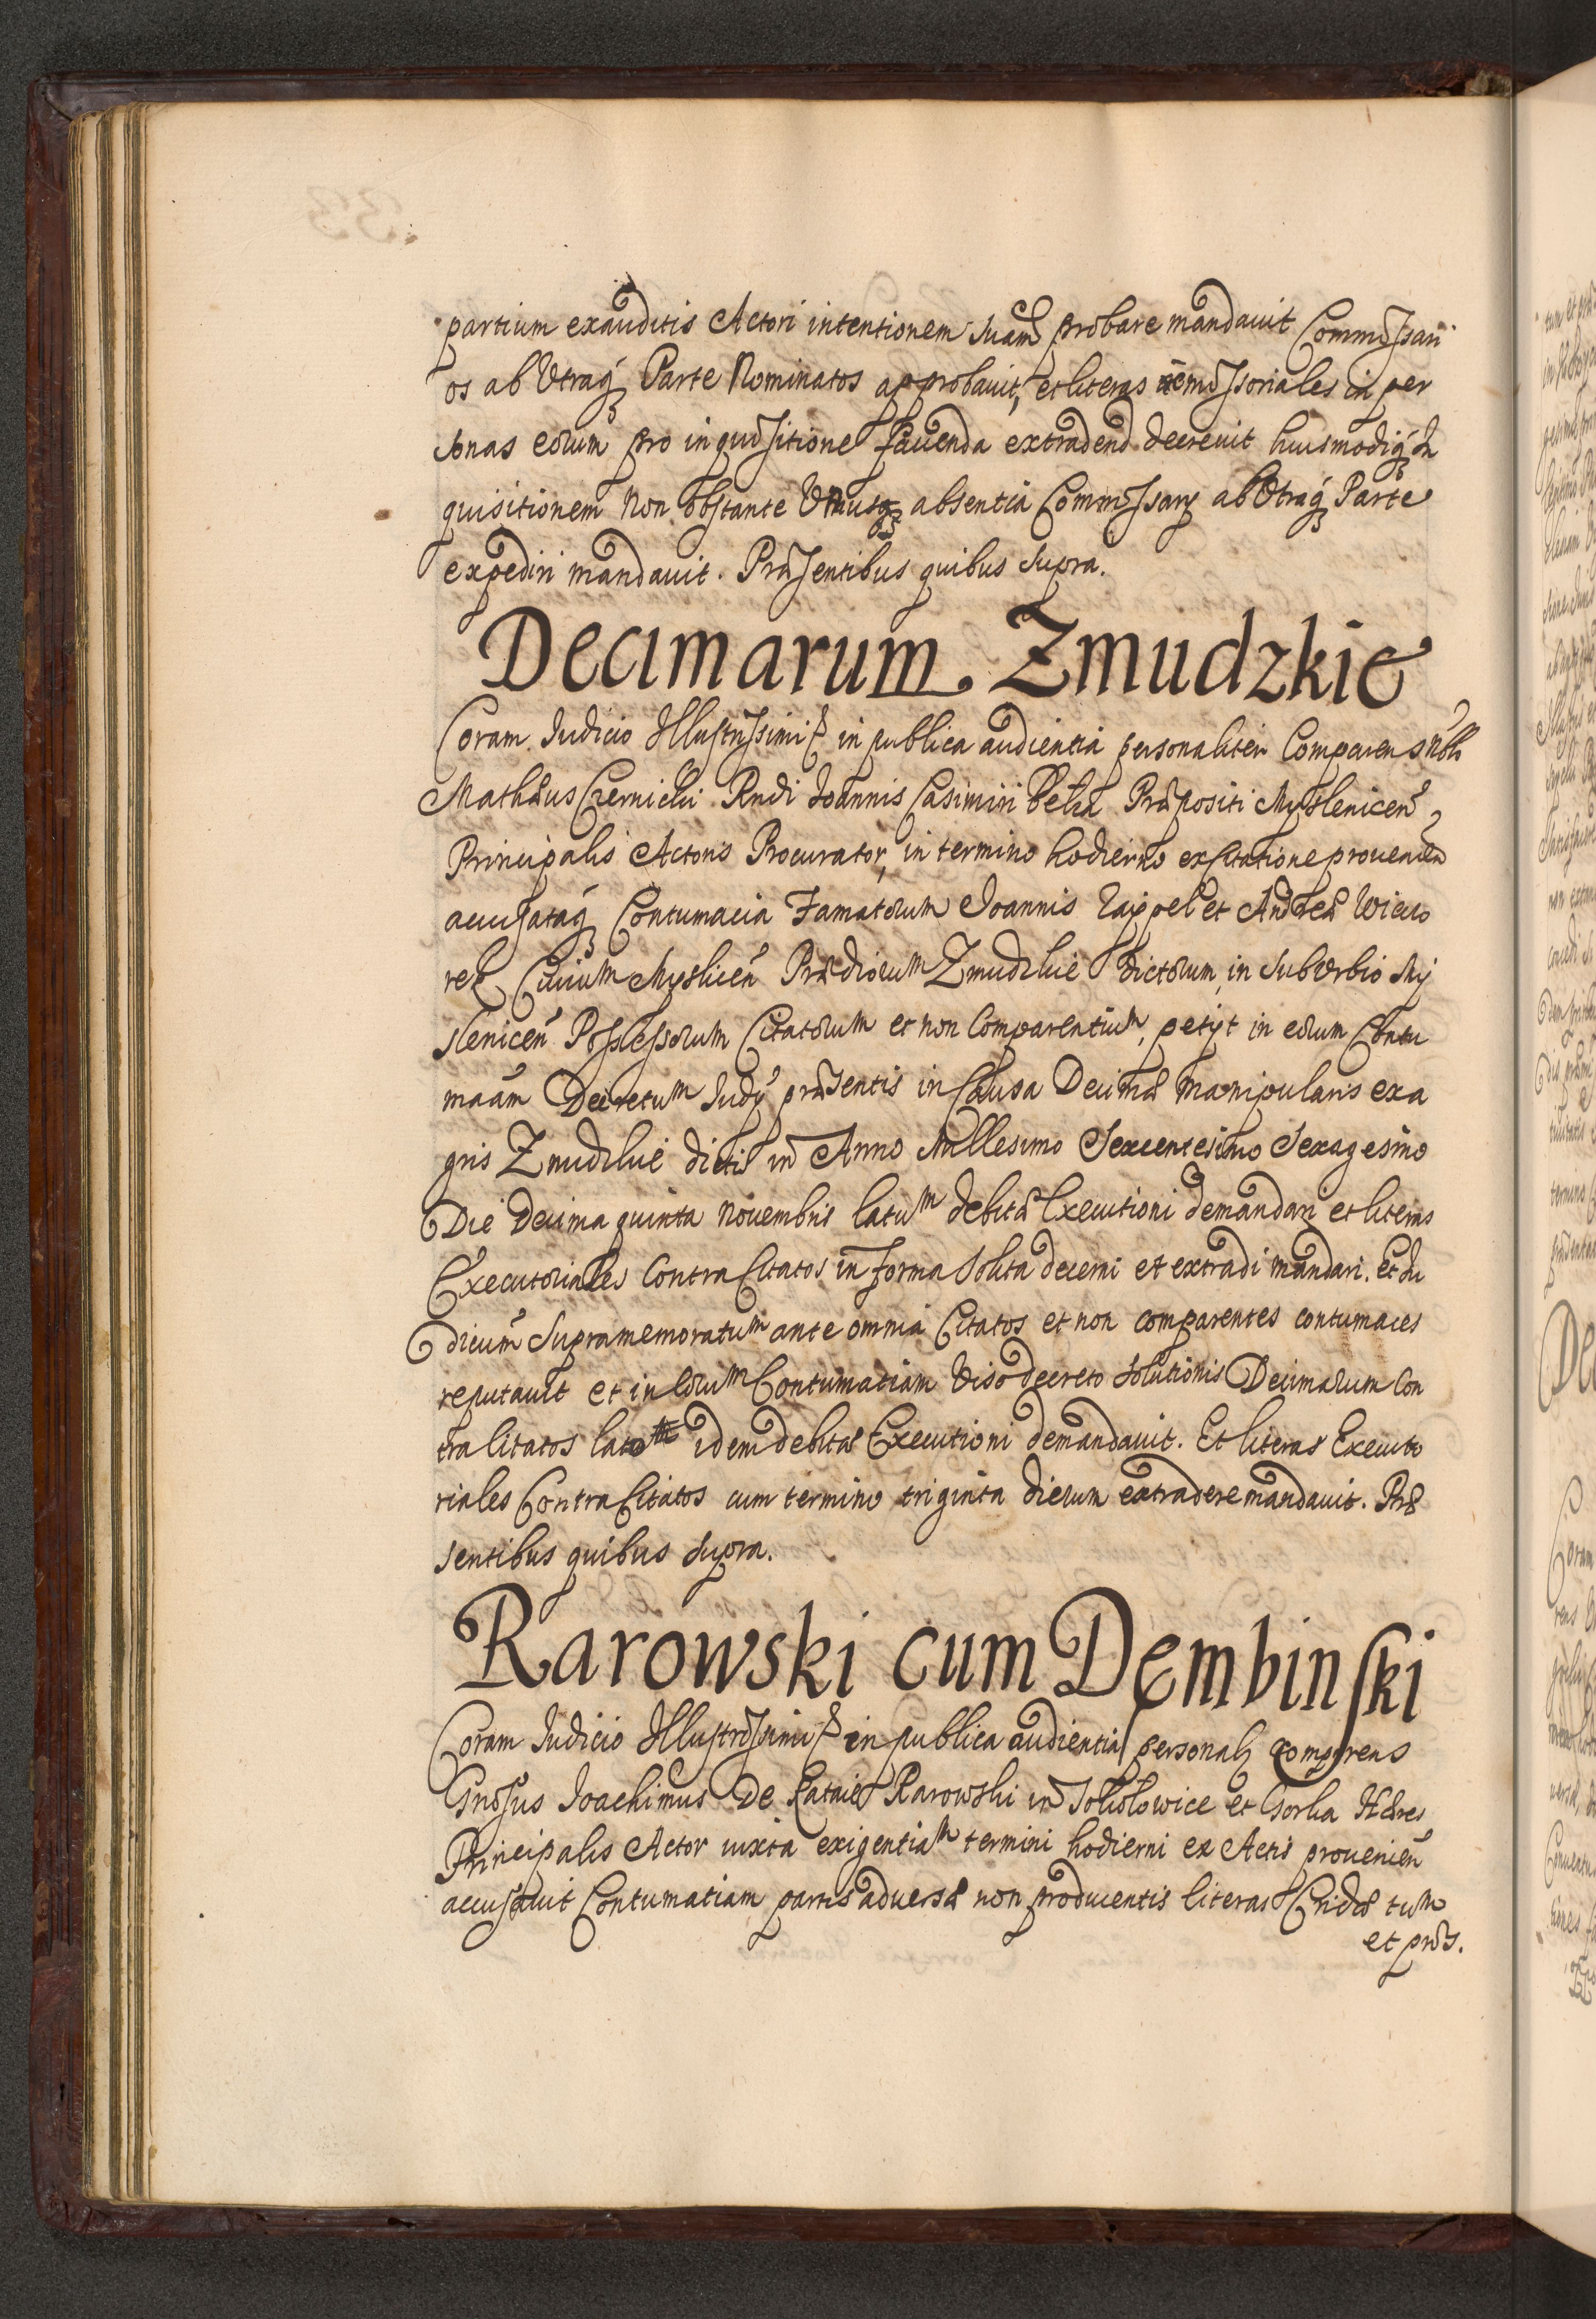 partium exauditis Actori intentionem Suam probare mandauit Commissari
os ab Vtraq3 Parte Nominatos approbauit, et literas remissoriales in per
sonas eorum pro inquisitione facienda extradend decreuit huiusmodiq3 In
quisitionem Non obstante Vniusq3 absentia Commissarij ab Vtraq3 Parte
expediri mandauit. Præsentibus quibus Supra.
Decimarum Zmudzkie
Coram Iudicio Illustrissimi in publica audientia personaliter Comparens Nblis
Mathæus Czernicki Rndi Ioannis Casimiri Præpositi Myslenicen̄
Principalis Actoris Procurator, in termino hodierno ex Citatione prouenien̄
accusataq3 Contumacia Famatorum Joannis Zappel et Andreæ Wicio
rek Ciuium Myslicen̄ Prædiorum Zmudzkie Dictorum, in SubVrbio My
slenicen̄ Possessorum Citatorum et non Comparentium, petijt in eorum Contu
maām Decretum Iudij præsentis in Causa Decimæ Manipularis ex a
gris Zmudzkie dictis in Anno Millesimo Sexcentesimo Sexagesimo
Die Decima quinta Nouembris latum debitæ Executioni demandari et literas
Executoriales Contra Citatos in forma Solita decerni et extradi mandari. Et Iu
dicium Supramemoratum ante omnia Citatos et non comparentes contumaces
reputauit et in Eorum Contumatiam Viso decreto Solutionis Decimarum Con
tra Citatos lato idem debitæ Executioni demandauit. Et literas Executo
riales Contra Citatos cum termino triginta dierum extradere mandauit. Præ
sentibus quibus Supra.
Rarowski cum Dembinski
Coram Iudicio Illustrissimi in publica audientia personalr comparens
Gnosus Joachimus De Rarowski in Sokolowice et Gorka Hæres
Principalis Actor iuxta exigentiam termini hodierni ex Actis prouenien̄
accusauit Contumatiam partis aduersæ non producentis literas Cridæ tum
et